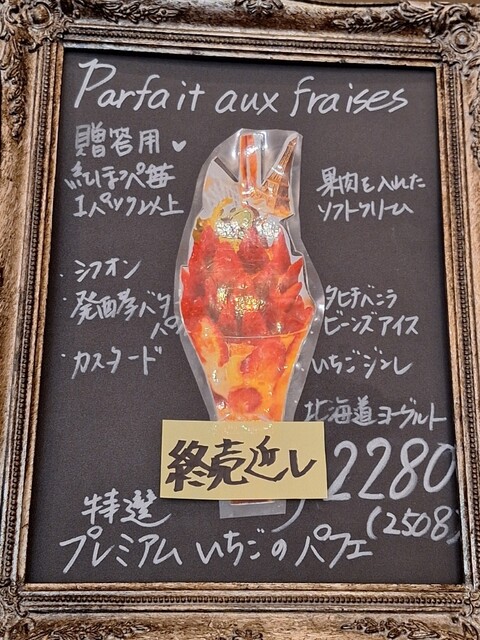 Parfait aux fraises
贈答用♥
紅ほっぺ苺
1パック以上
果肉を入れた
ソフトクリーム
・シフォン
・発酵バタ
・カスタード
タヒチバニラ
ビーンズアイス
いちごジュレ
北海道ヨーグルト
終売近し
2280
(2508)
特選
プレミアムいちごのパフェ